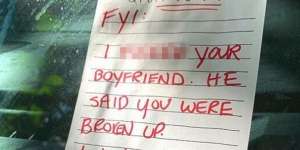 FYI:
I YOUR
BOYFRIEND. HE
SAID YOU WERE
BROKEN UP.